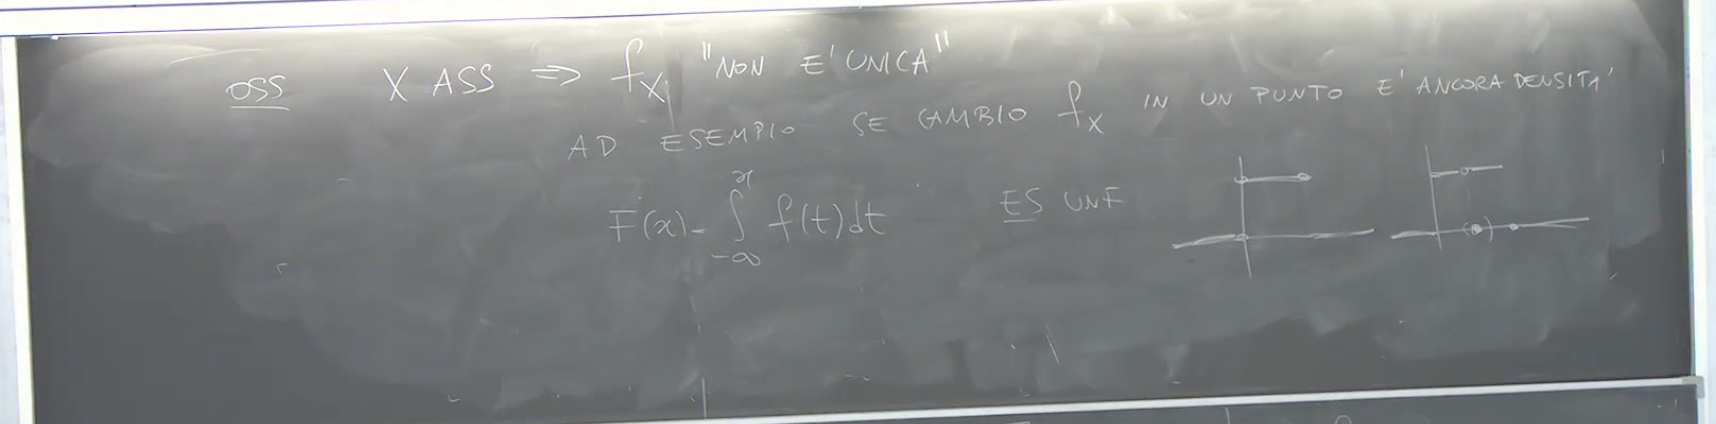 OSS X ASS ⇒ fX "NON E' UNICA"
AD ESEMPIO SE CAMBIO fX IN UN PUNTO E' ANCORA DENSITA'
F(x) = ∫_{-∞}^{x} f(t)dt ES UNIF